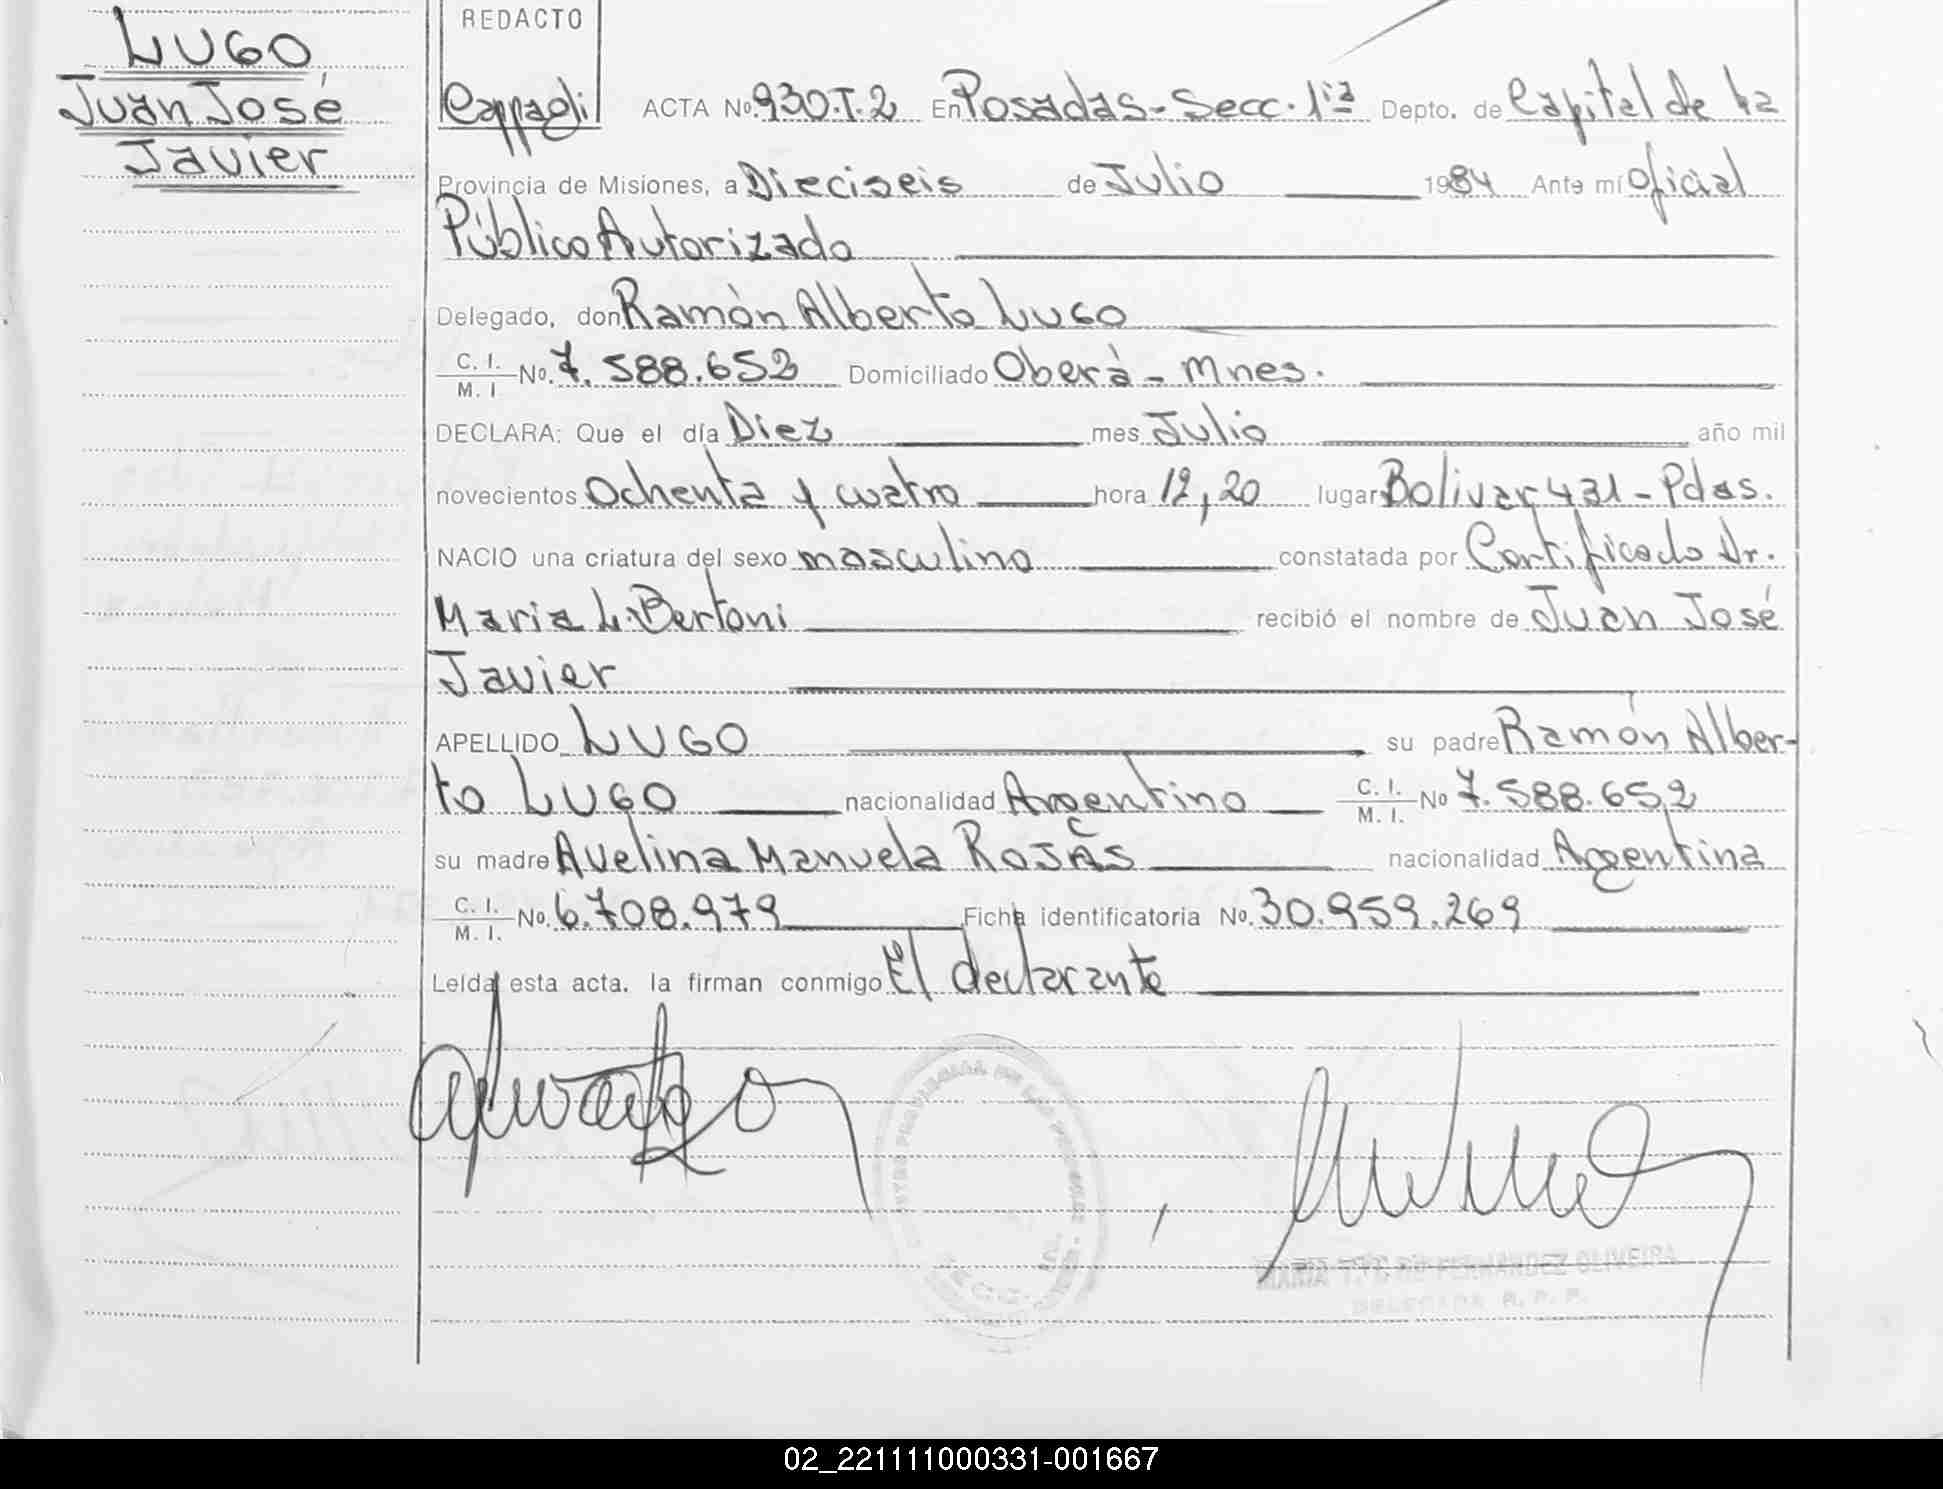 LUGO
Juan José
Javier
REDACTO
Cappagli
ACTA Nº 930.T.2 En Posadas-Secc. 1ia Depto. de Capital de la
Provincia de Misiones, a Dieciseis de Julio 1984 Ante mí Oficial
Público Autorizado
Delegado, don Ramón Alberto LUGO
C. I. / M. I Nº. 7.588.652 Domiciliado Oberà - Mnes.
DECLARA: Que el día Diez mes Julio año mil
novecientos Ochenta y cuatro hora 12,20 lugar Bolivar 431 - Pdas.
NACIO una criatura del sexo masculino constatada por Certificado Dr.
Maria L. Bertoni recibió el nombre de Juan José
Javier
APELLIDO LUGO su padre Ramón Alber-
to LUGO nacionalidad Argentino C. I. / M. I. Nº 7.588.652
su madre Avelina Manuela ROJAS nacionalidad Argentina
C. I. / M. I. Nº. 6.708.979 Ficha identificatoria Nº. 30.959.269
Leída esta acta. la firman conmigo El declarante
MARIA T. F. DE FERNANDEZ OLIVEIRA
DELEGADA R. P. P.
02_221111000331-001667